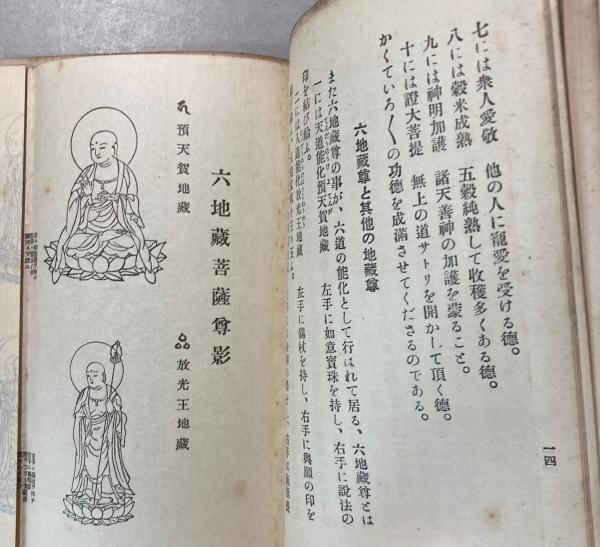 七には衆人愛敬 他の人に寵愛を受ける德。
八には穀米成熟 五穀純熟して收穫多くある德。
九には神明加護 諸天善神の加護を蒙ること。
十には證大菩提 無上の道サトリを開かして頂く德。
かくていろ〱の功德を成滿させてくださるのである。
六地藏尊と其他の地藏尊
また六地藏尊の事が、六道の能化として行はれて居る、六地藏尊とは
一には天道能化預天賀地藏 左手に如意寶珠を持し、右手に説法の
印を結び給ふ。
二には人道能化放光王地藏 左手に錫杖を持し、右手に與願の印を
一四
六地藏菩薩尊影
預天賀地藏
放光王地藏